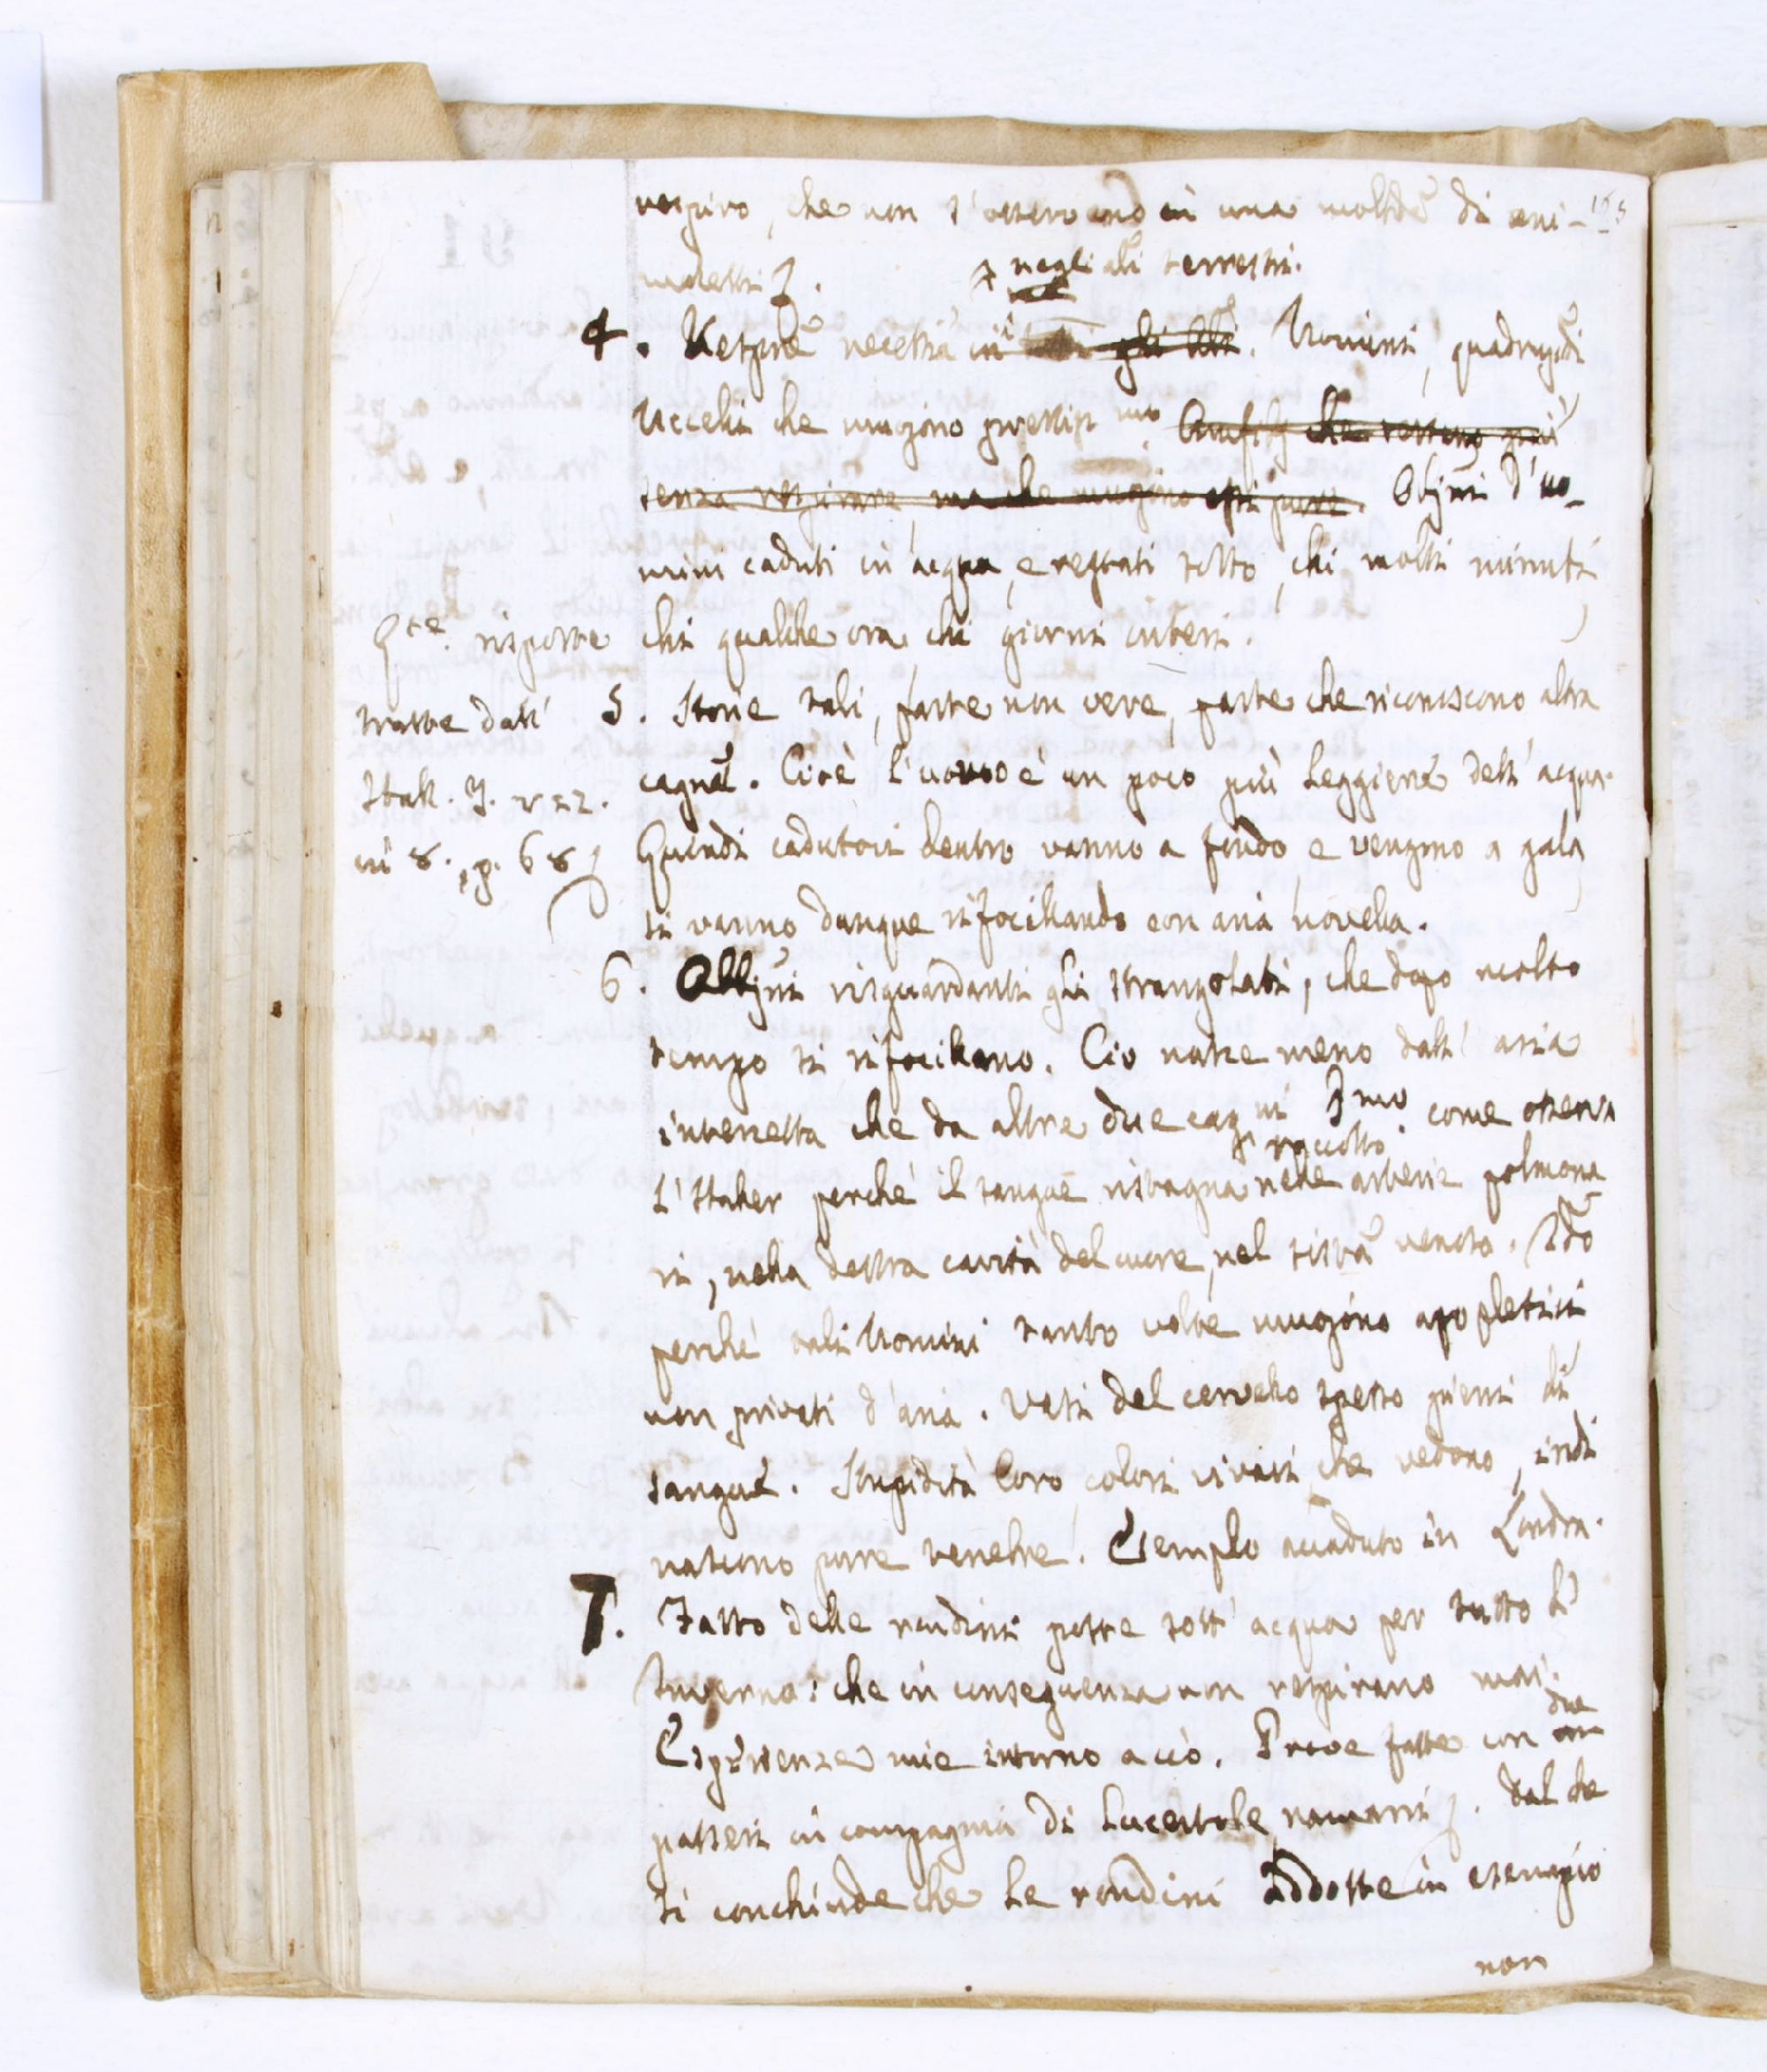 respiro, che non s'osservano in una moltdẽ di ani-
maletti &.
negli ali terrestri.
4. Respirẽ necessia in gli . Uomini, quadrupdi
Uccelli che muojono privatisi mo Anfibj che restano più
senza respirare, ma che muojono essi pure. Obbjni d'uo-
mini caduti in acqua, e restati sotto, chi molti minuti
chi qualche ora chi giorni interi.
Qte risposte
tratte dall'
Hall. T.
in 8. p. 68
5. Storie tali, parte non vere, parte che riconoscono altra
cagne. Cioè l'uomo è un poco più leggiere dell'acqua.
Quindi cadutovi dentro vanno a fondo e vengono a gala
si vanno dunque rifocillando con aria novella.
6. Obbjni risguardanti gli strangolati, che dopo molto
tempo si rifocillano. Ciò nasce meno dall'aria
intercetta che da altre due cagni Pmo come osserva
raccolto
l'Haller perchè il sangue ristagna nelle arterie polmona
ri, nella destra cavità del cuore, nel sistã venoso. 2do
perchè tali Uomini tante volte muojono apopletici
non privati d'aria. Vasi del cervello spesso pieni di
sangue. Stupidità loro colori vivaci che vedono, indi
nascono pure tenebre. Esempio accaduto in Londra.
7. Fatto delle rondini poste sott'acqua per tutto l'
Inverno: che in conseguenza non respirano mai.
due
Esperienze mie intorno a ciò. Prove fatte con
passeri in compagnia di lucertole, ramarri &. Dal che
si conchiude che le rondini addotte in esempio
non